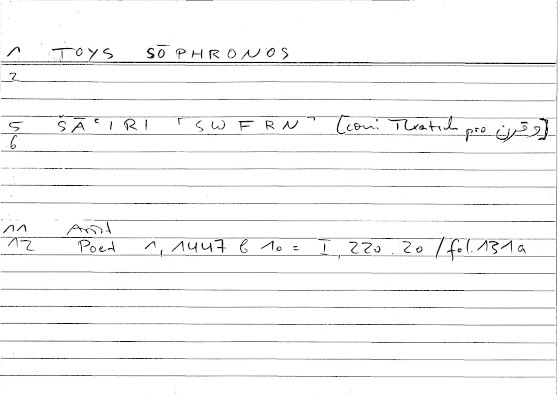 1 TOYS SŌPHRONOS
2
5 ŠĀʿIRI ⌜SWFRN⌝ [coni. Tkatsch pro وقرن]
6
11 Arist
12 Poet 1, 1447 b 10 = I, 220.20 / fol. 131a